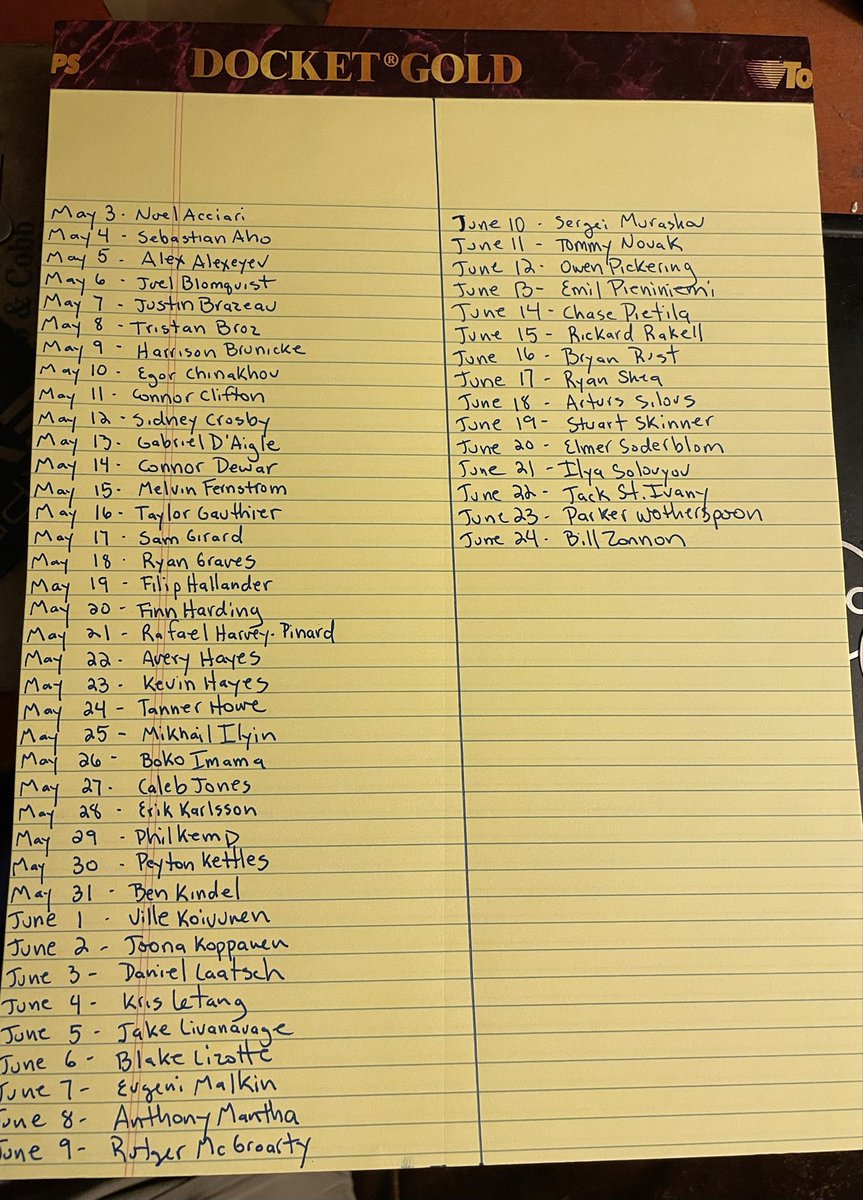 PS DOCKET® GOLD To
May 3 - Noel Acciari
May 4 - Sebastian Aho
May 5 - Alex Alexeyev
May 6 - Joel Blomquist
May 7 - Justin Brazeau
May 8 - Tristan Broz
May 9 - Harrison Brunicke
May 10 - Egor Chinakhov
May 11 - Connor Clifton
May 12 - Sidney Crosby
May 13 - Gabriel D'Aigle
May 14 - Connor Dewar
May 15 - Melvin Fernstrom
May 16 - Taylor Gauthier
May 17 - Sam Girard
May 18 - Ryan Graves
May 19 - Filip Hallander
May 20 - Finn Harding
May 21 - Rafael Harvey-Pinard
May 22 - Avery Hayes
May 23 - Kevin Hayes
May 24 - Tanner Howe
May 25 - Mikhail Ilyin
May 26 - Boko Imama
May 27 - Caleb Jones
May 28 - Erik Karlsson
May 29 - Phil Kemp
May 30 - Peyton Kettles
May 31 - Ben Kindel
June 1 - Ville Koivunen
June 2 - Joona Koppanen
June 3 - Daniel Laatsch
June 4 - Kris Letang
June 5 - Jake Livanavage
June 6 - Blake Lizotte
June 7 - Evgeni Malkin
June 8 - Anthony Mantha
June 9 - Rutger McGroarty
June 10 - Sergei Murashov
June 11 - Tommy Novak
June 12 - Owen Pickering
June 13 - Emil Pieniniemi
June 14 - Chase Pietila
June 15 - Rickard Rakell
June 16 - Bryan Rust
June 17 - Ryan Shea
June 18 - Arturs Silovs
June 19 - Stuart Skinner
June 20 - Elmer Soderblom
June 21 - Ilya Solovyov
June 22 - Jack St. Ivany
June 23 - Parker Wotherspoon
June 24 - Bill Zonnon